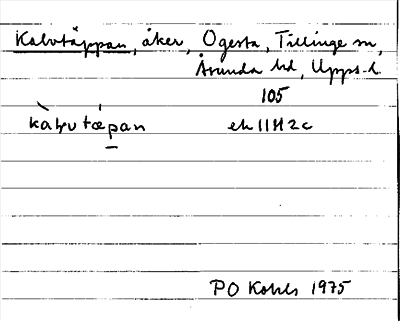 Kalvtäppan, åker, Ögesta, Tillinge sn,
Åsunda hd, Upps. l.
105
kàl̥vtæpan ek 11H2c
PO 1975